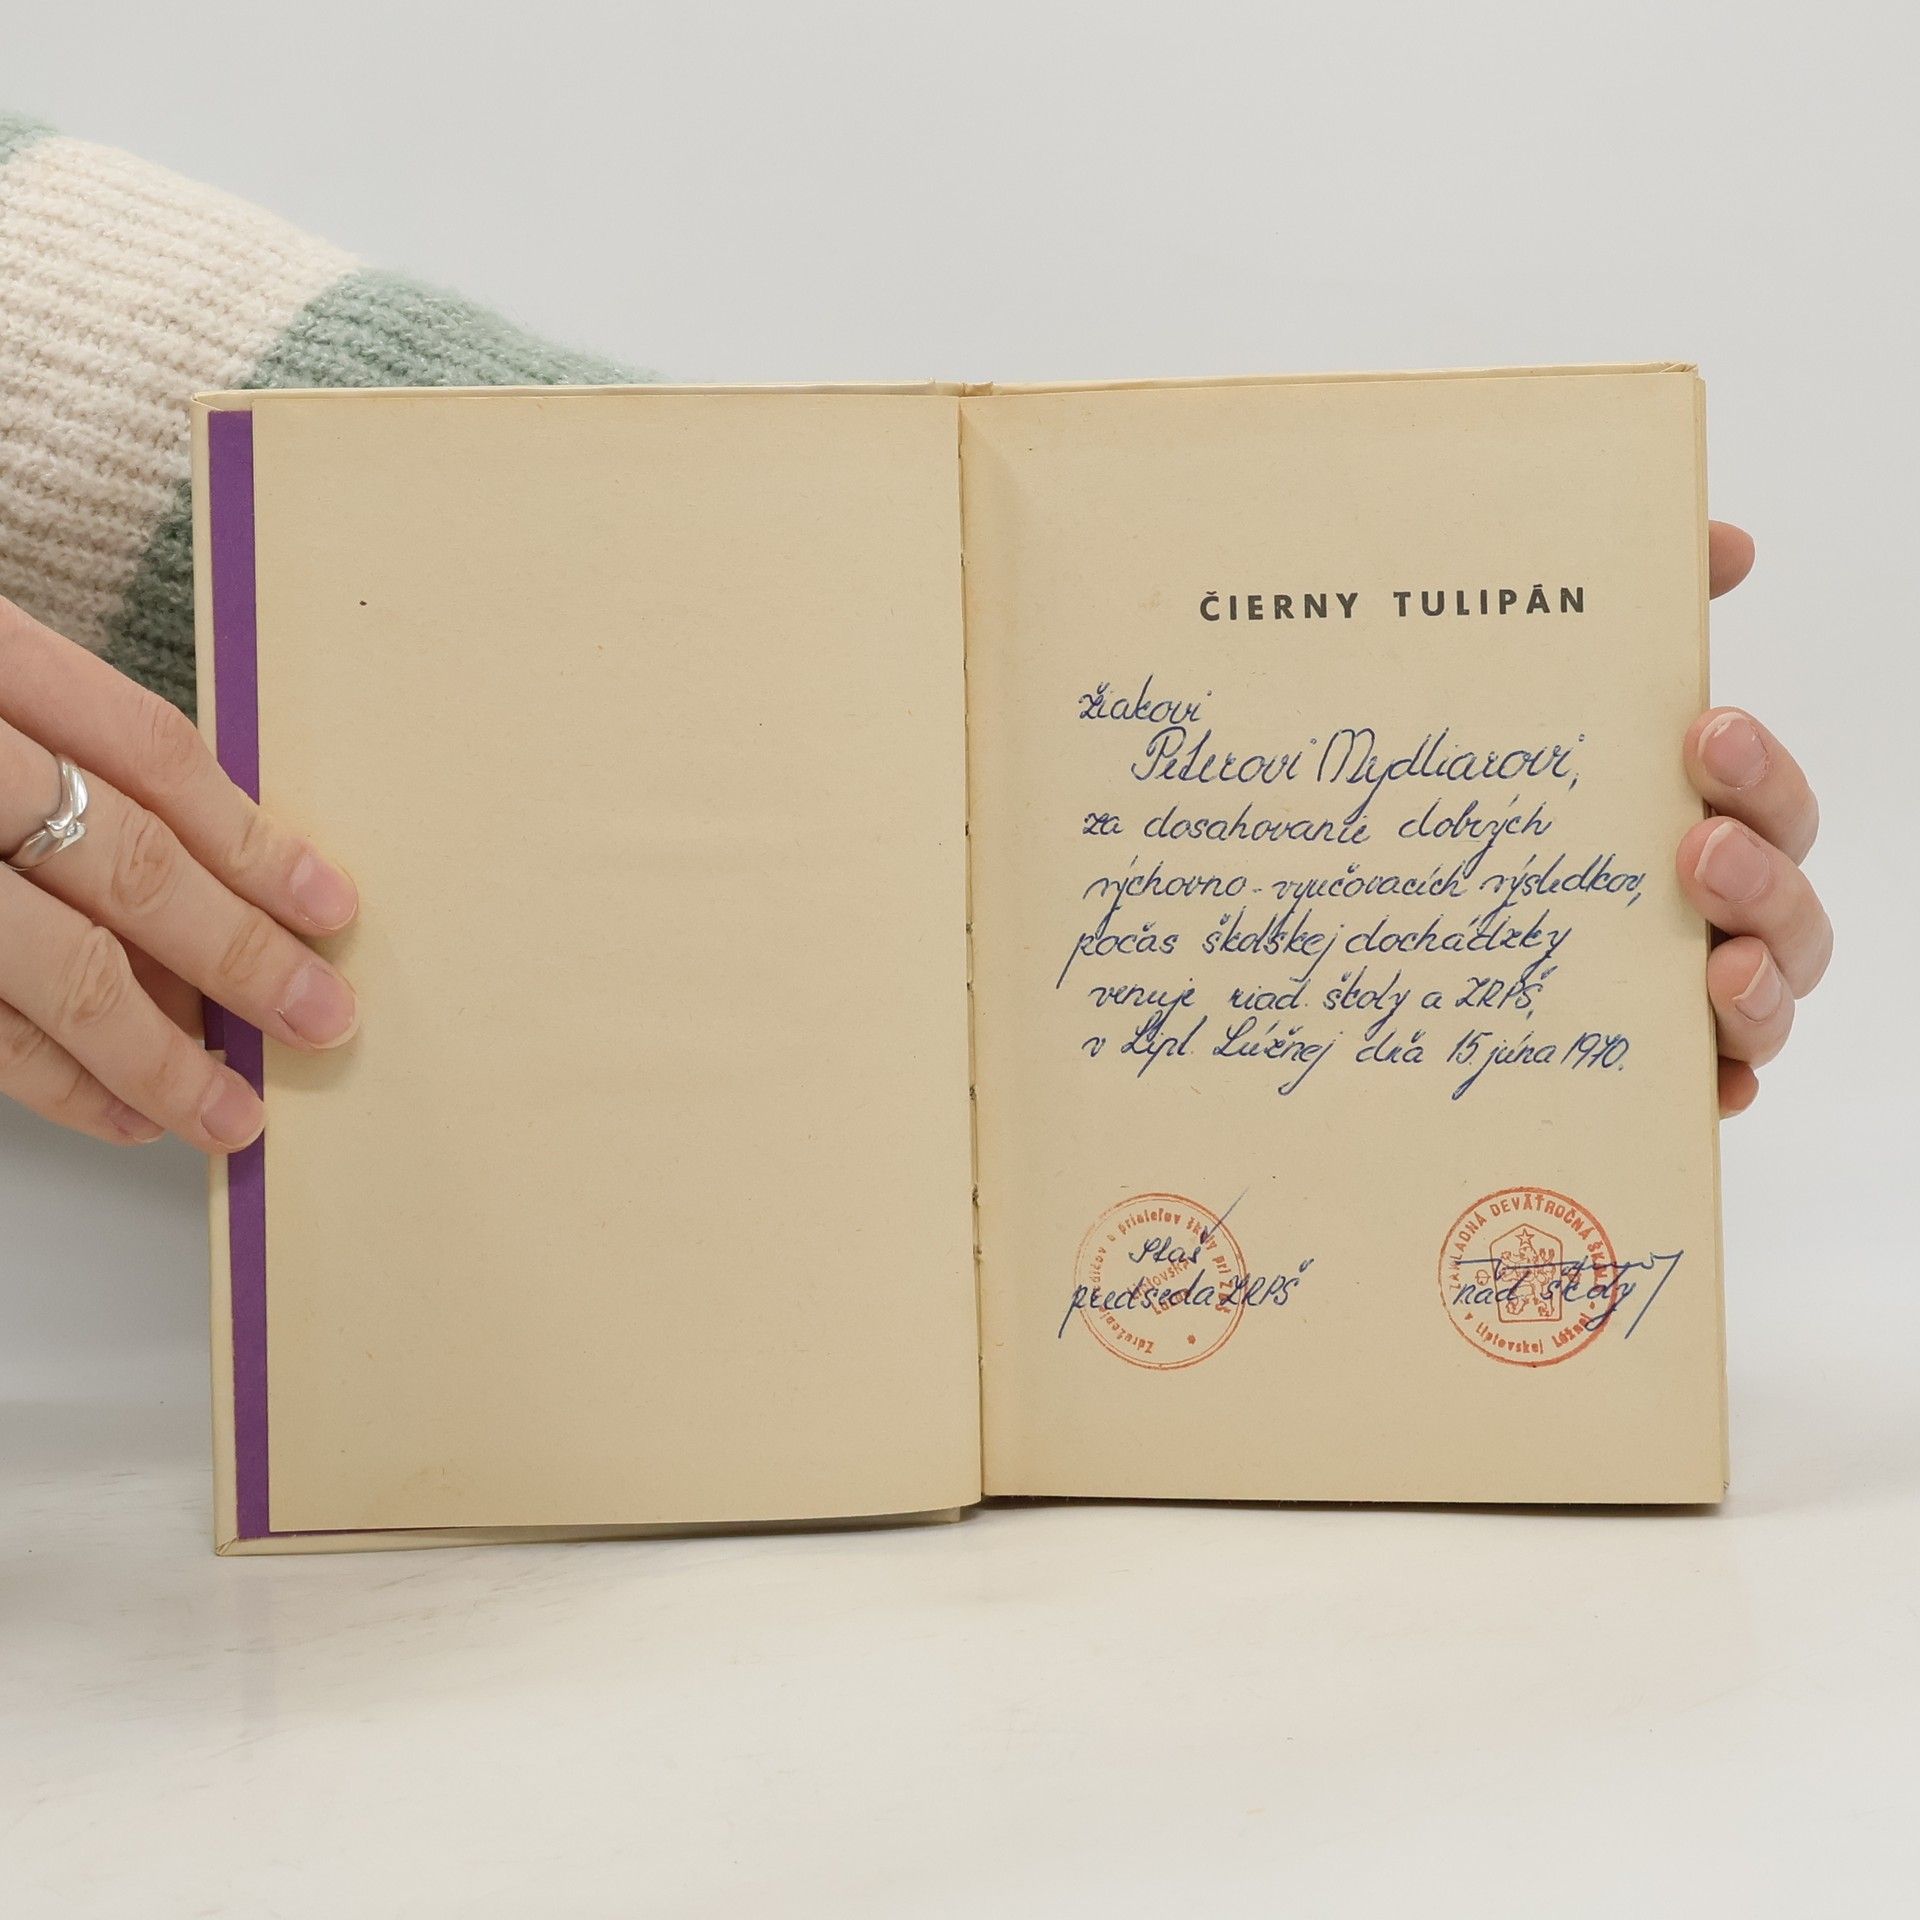 ČIERNY TULIPÁN
žiakovi
Peterovi Mydliarovi,
za dosahovanie dobrých
výchovno-vyučovacích výsledkov,
počas školskej dochádzky
venuje riad. školy a ZRPŠ,
v Lipt. Lúžnej dňa 15. júna 1970.
Staš
predseda ZRPŠ
riad školy
Združenie rodičov a priateľov školy pri ZDŠ
Liptovská
Lúžna
ZÁKLADNÁ DEVÄŤROČNÁ ŠKOLA
v Liptovskej Lúžnej